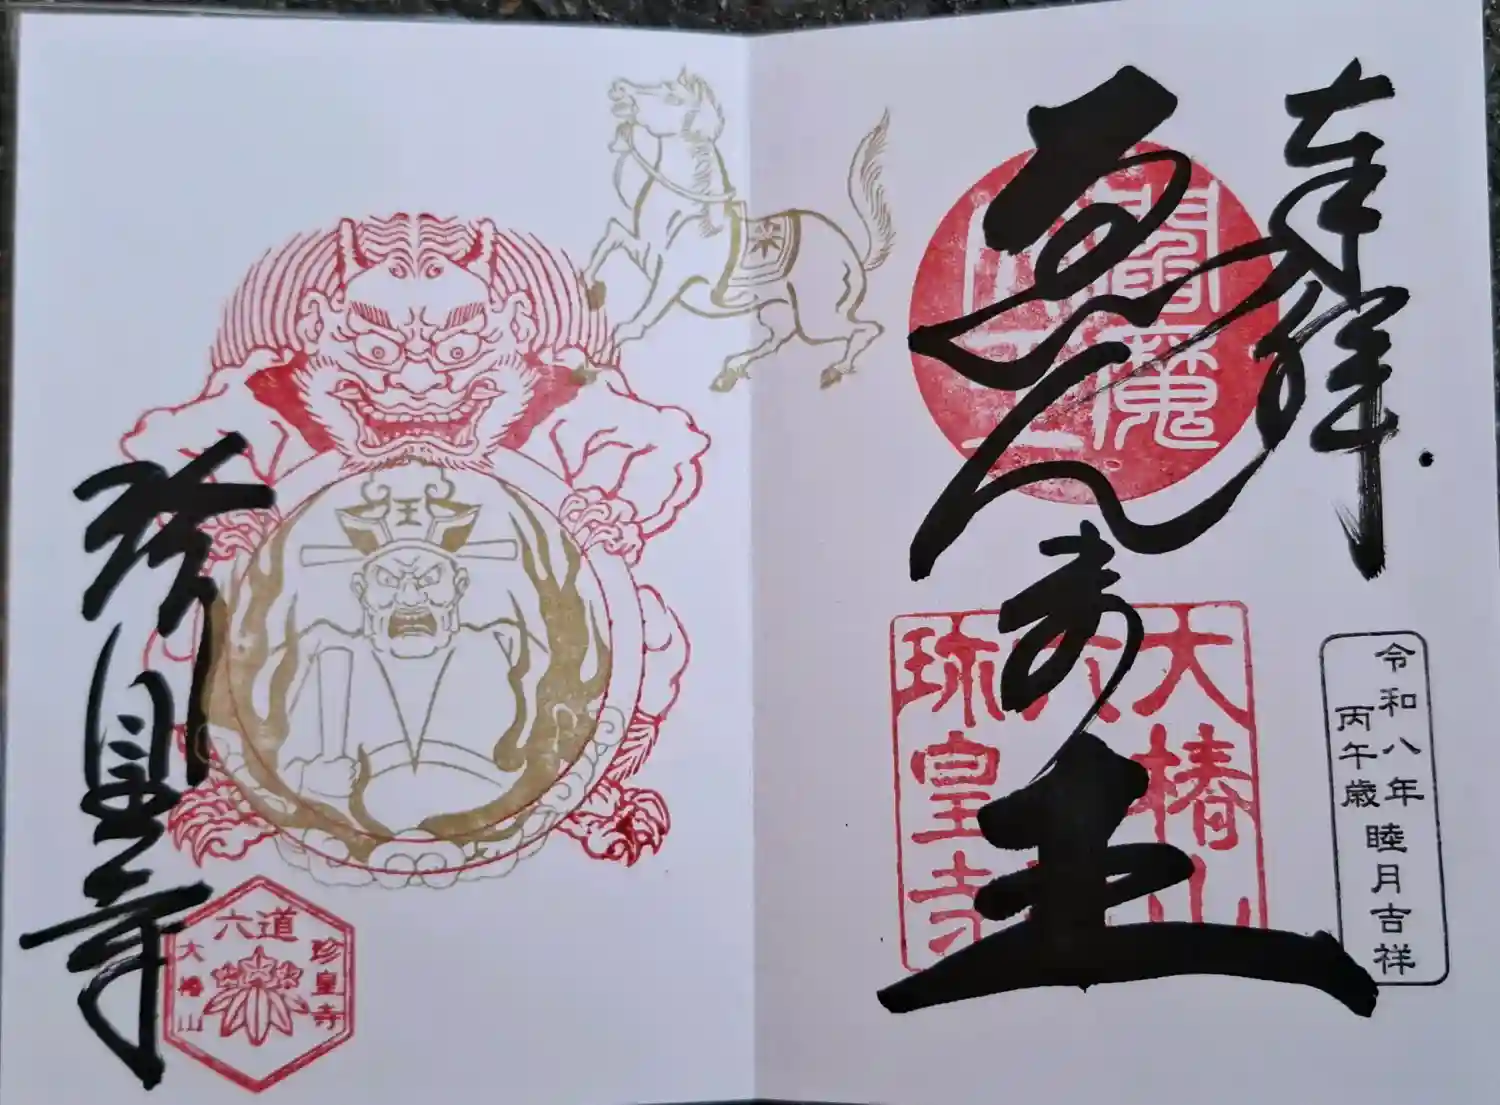 奉拝
閻魔
えんま王
大椿山
六
珎皇寺
令和八年
丙午歳
睦月吉祥
王
珍皇寺
六道
珍皇寺
大椿山